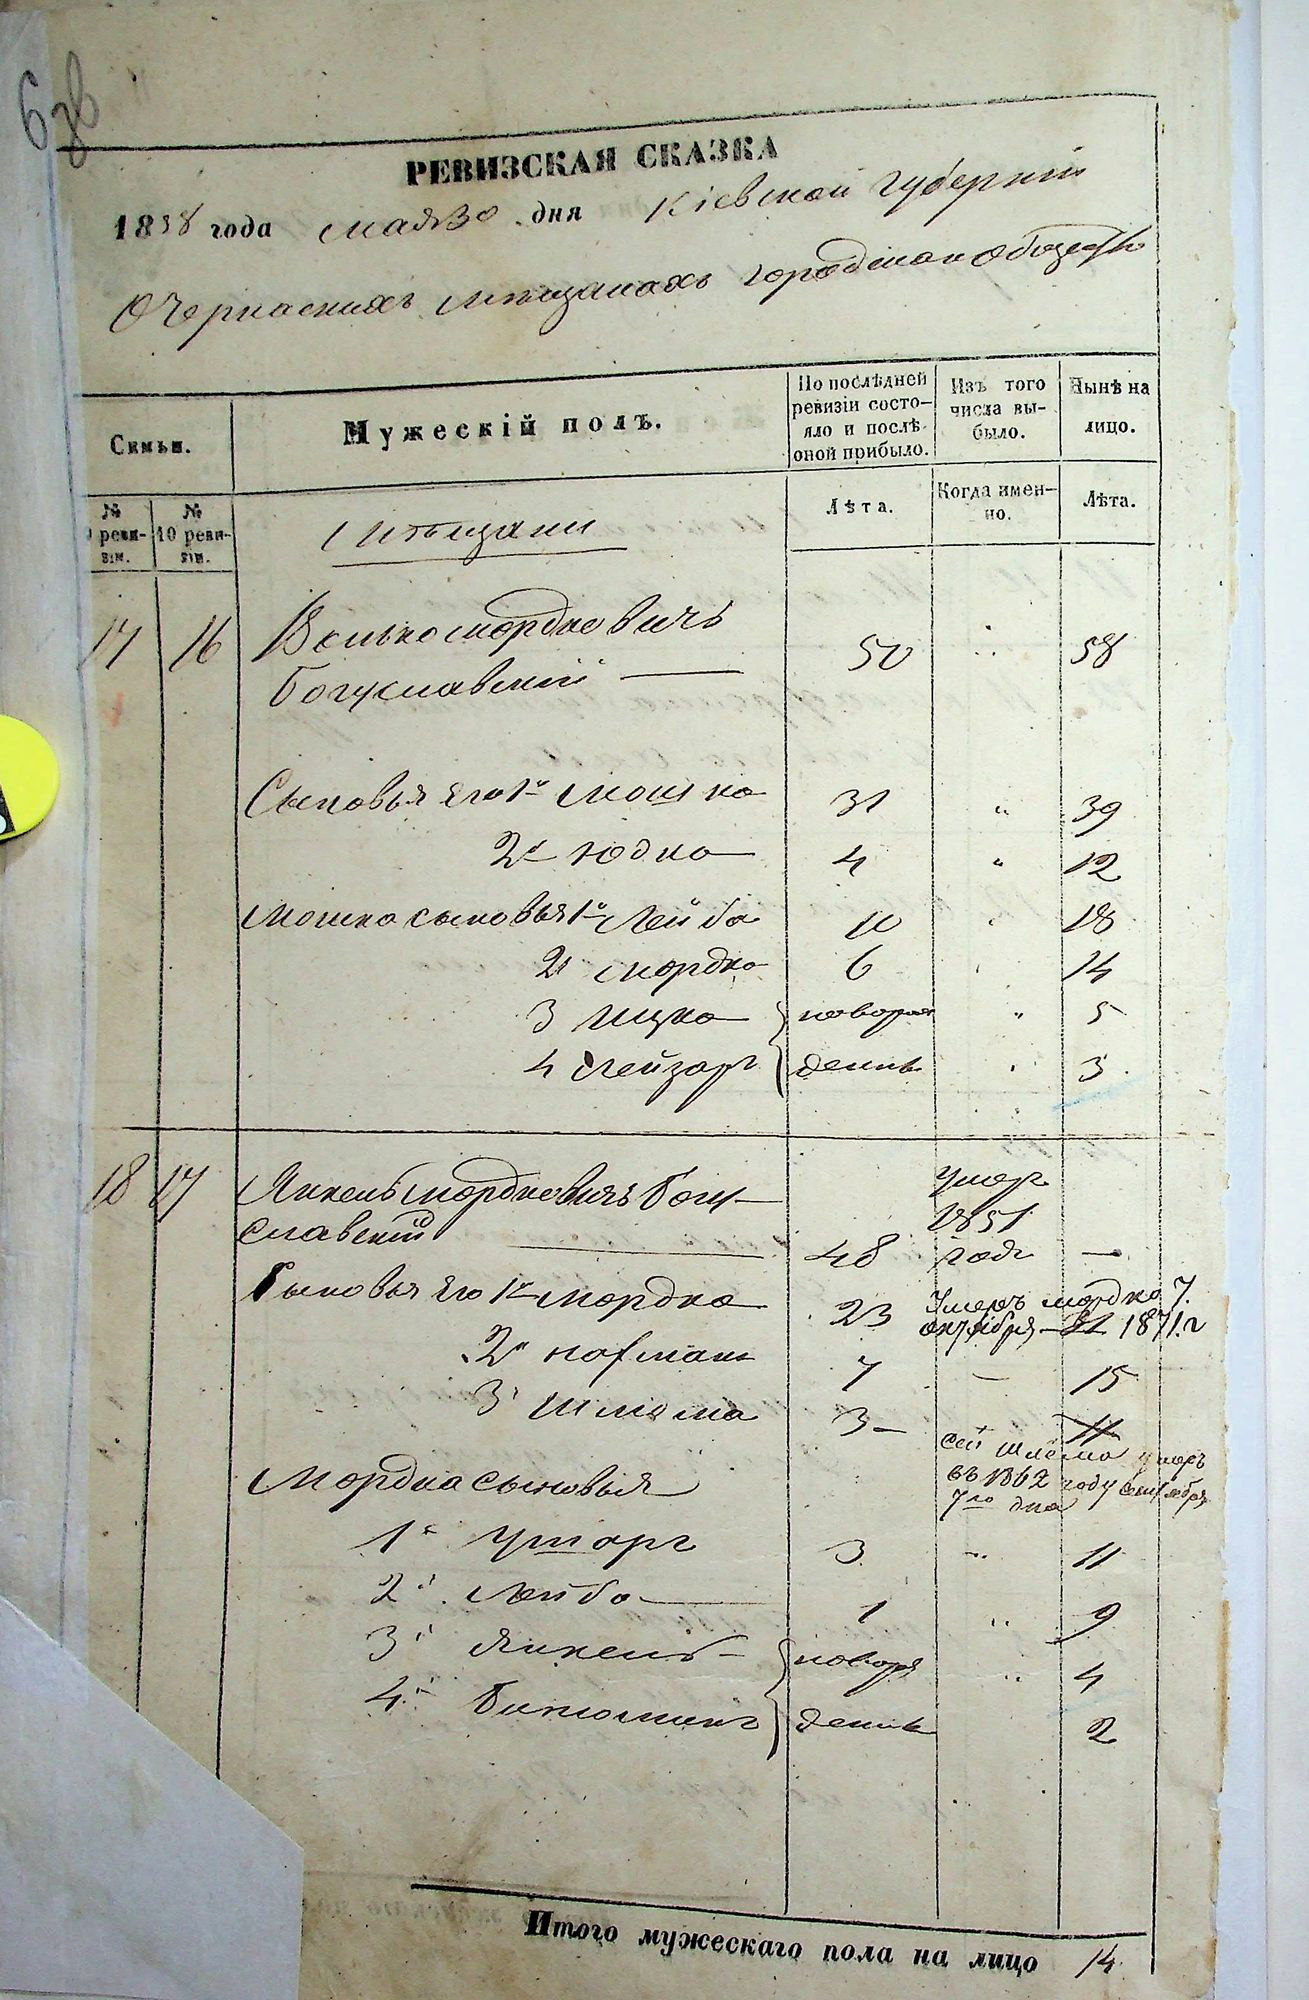 РЕВИЗСКАЯ СКАЗКА
1858 года мая 30 дня Кіевской губерніи
О Черкаскихъ мѣщанахъ городскаго Общества
Семьи. Мужескій полъ. По послѣдней ревизіи состояло и послѣ оной прибыло. Изъ того числа выбыло. Нынѣ на лицо.
№ реви-зіи. № 10 реви-зіи. Лѣта. Когда имен-но. Лѣта.
мѣщани
17 16 Волько Мордковичъ
Богуславскій — 50 " 58
Сыновья его 1й Мошко 31 " 39
2й Юдко 4 " 12
Мошко сыновья 1й Лейба 10 " 18
2й Мордко 6 " 14
3 Ицко новорож 5
4 Лейзоръ денны 3
18 17 Янкель Мордковичъ Богу-
славскій — 48 умеръ 1851 года —
Сыновья его 1й Мордко 23 Умеръ Мордко 7. октября 1871 г
2й Нафтань 7 - 15
3й Шлёма 3 - 11
сей Шлёма умеръ
въ 1862 году сентября
7го дня
Мордка сыновья
1й Ушоръ 3 " 11
2й Лейба — 1 " 9
3й Янкель - новоро " 4
4й Бинюминъ денны 2
Итого мужескаго пола на лицо 14